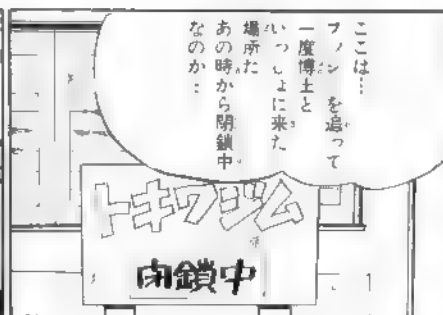 ここは…
を追って
一度博士と
いっしょに来た
場所だ
あの時から閉鎖中
なのか…
トキワジム
閉鎖中